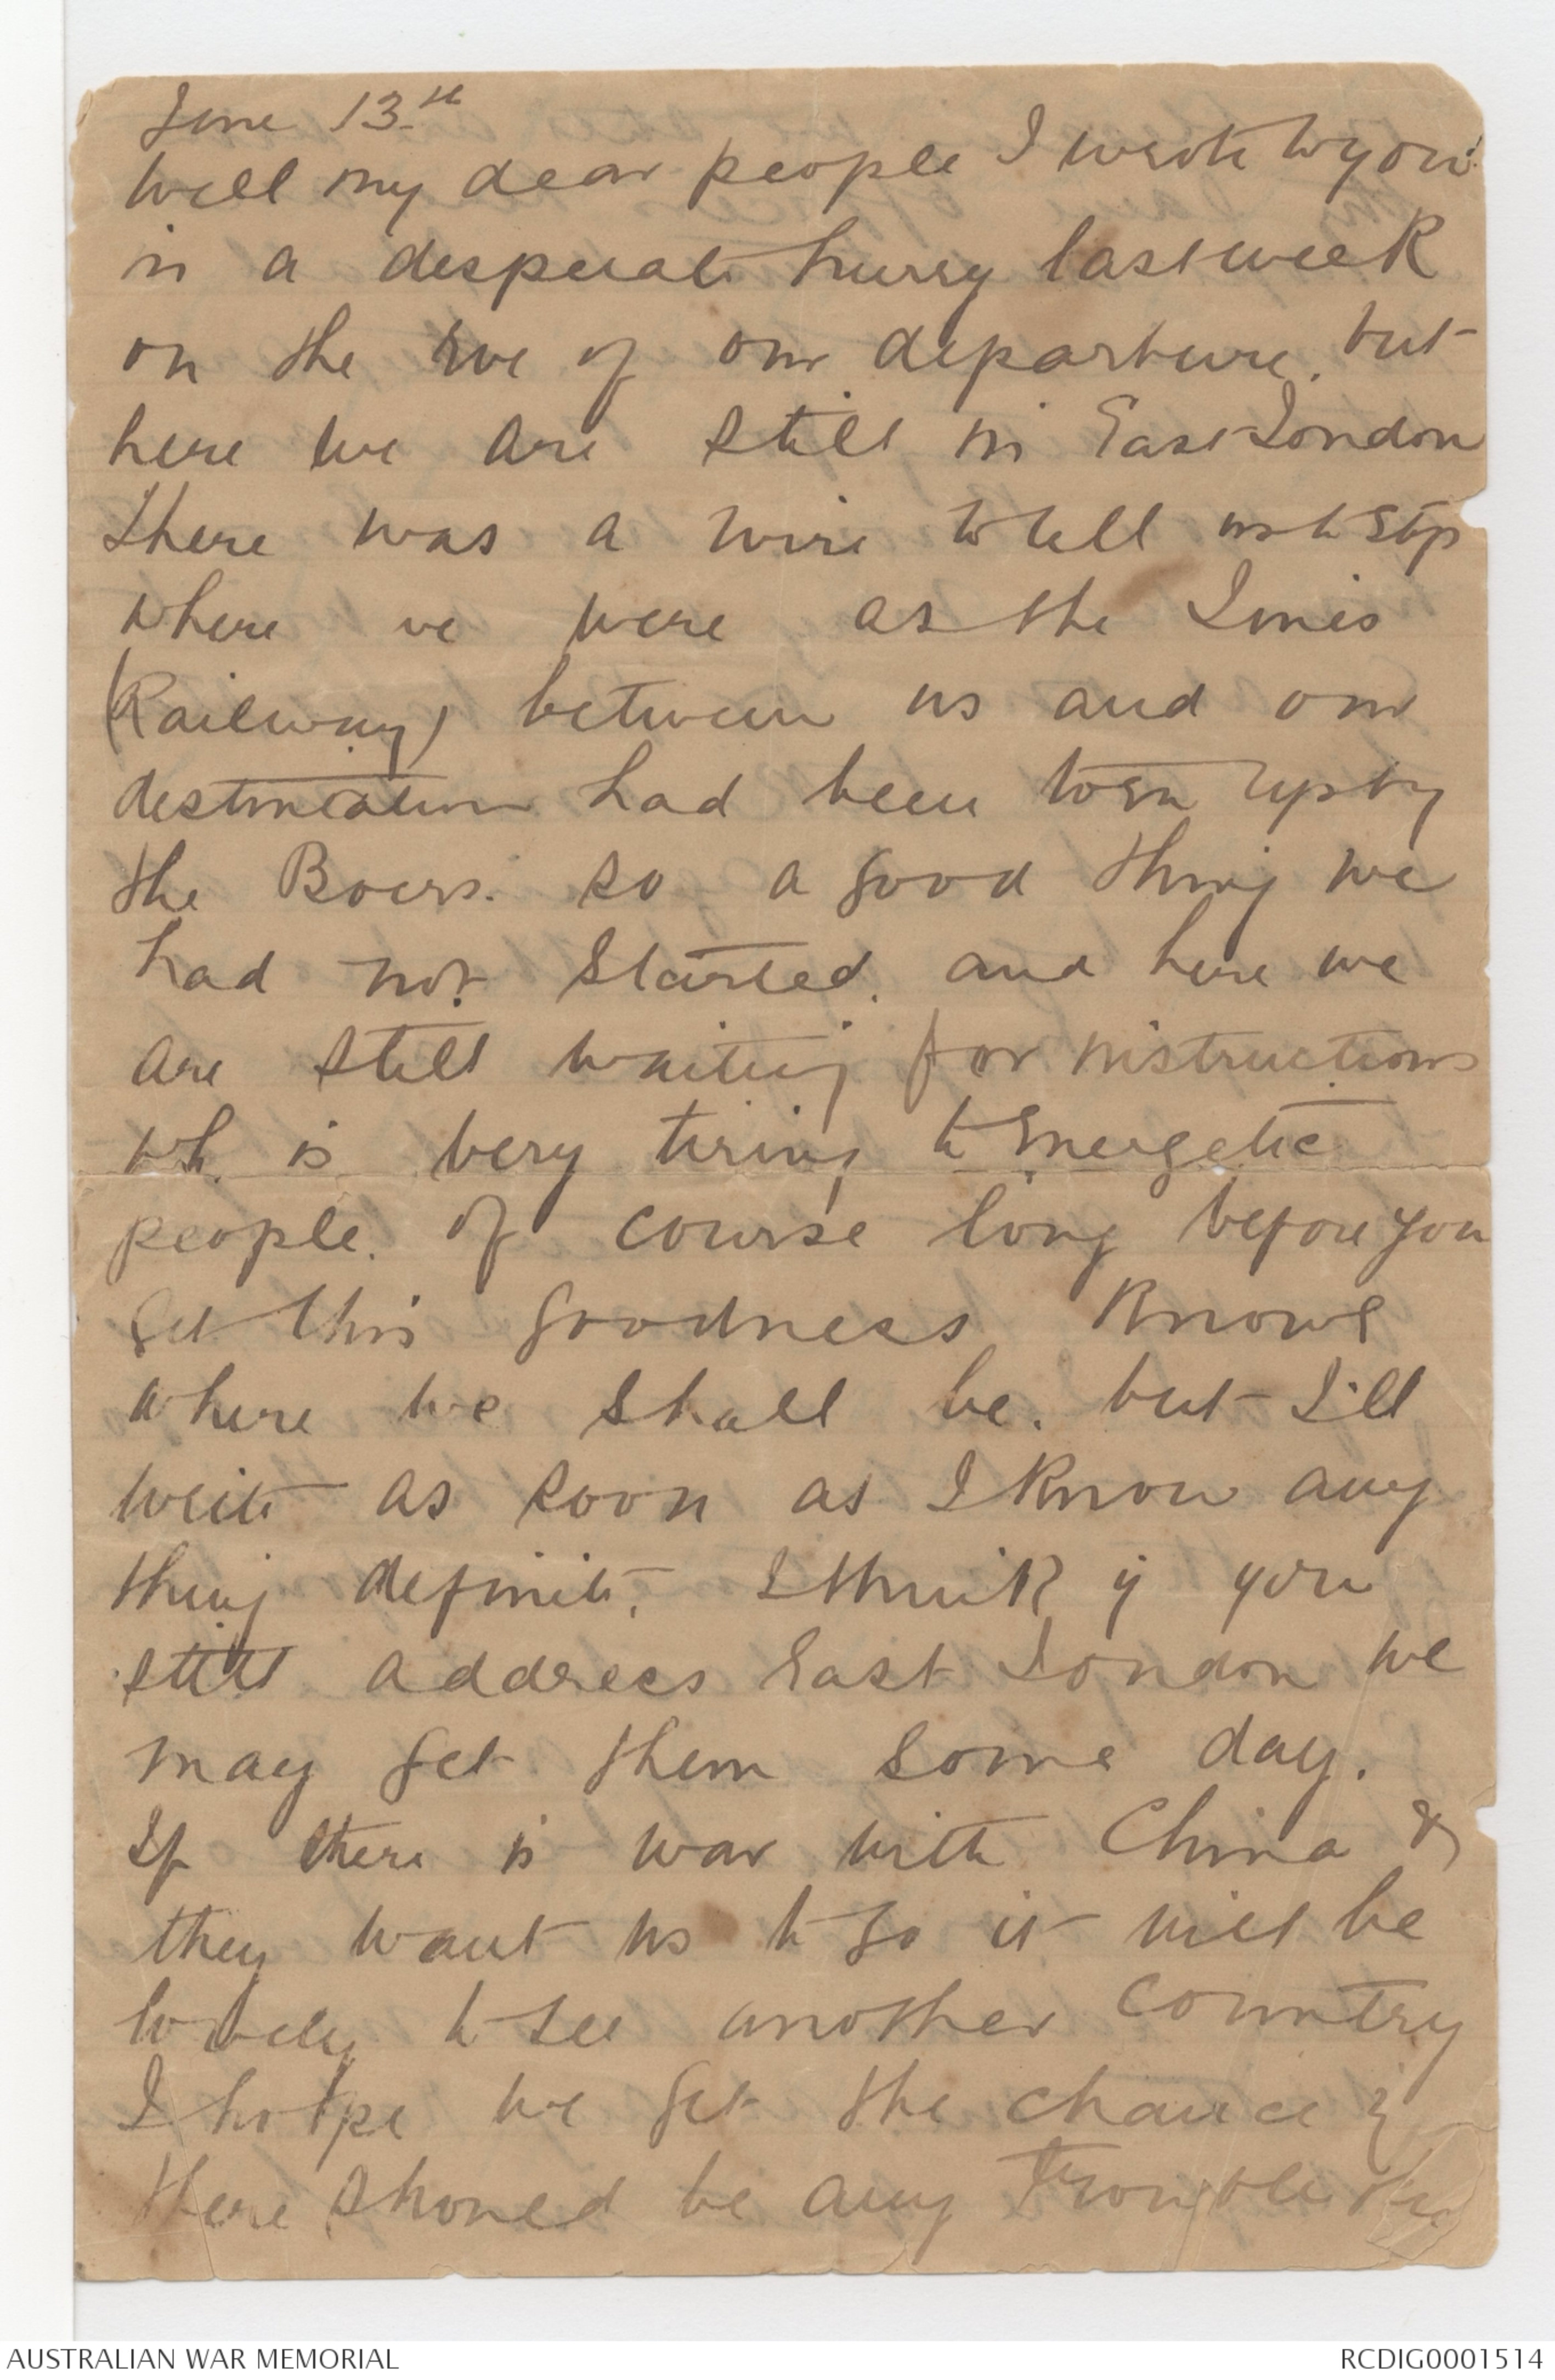 June 13th
Well my dear people I wrote to you
in a desperate hurry last week
on the eve of our departure. but
here we are still in East London
there was a wire to tell us to stop
where we were as the Lines
(Railway) between us and our
destination had been torn up by
the Boers. so a good thing we
had not started. and here we
are still waiting for instructions
wh. is very tiring to energetic
people. of course long before you
get this goodness knows
where we shall be. but I'll
write as soon as I know any
thing definite. I think if you
still address East London we
may get them some day.
If there is war with China &
they want us to go it will be
lovely to see another country
I hope we get the chance if
there should be any trouble
AUSTRALIAN WAR MEMORIAL
RCDIG0001514